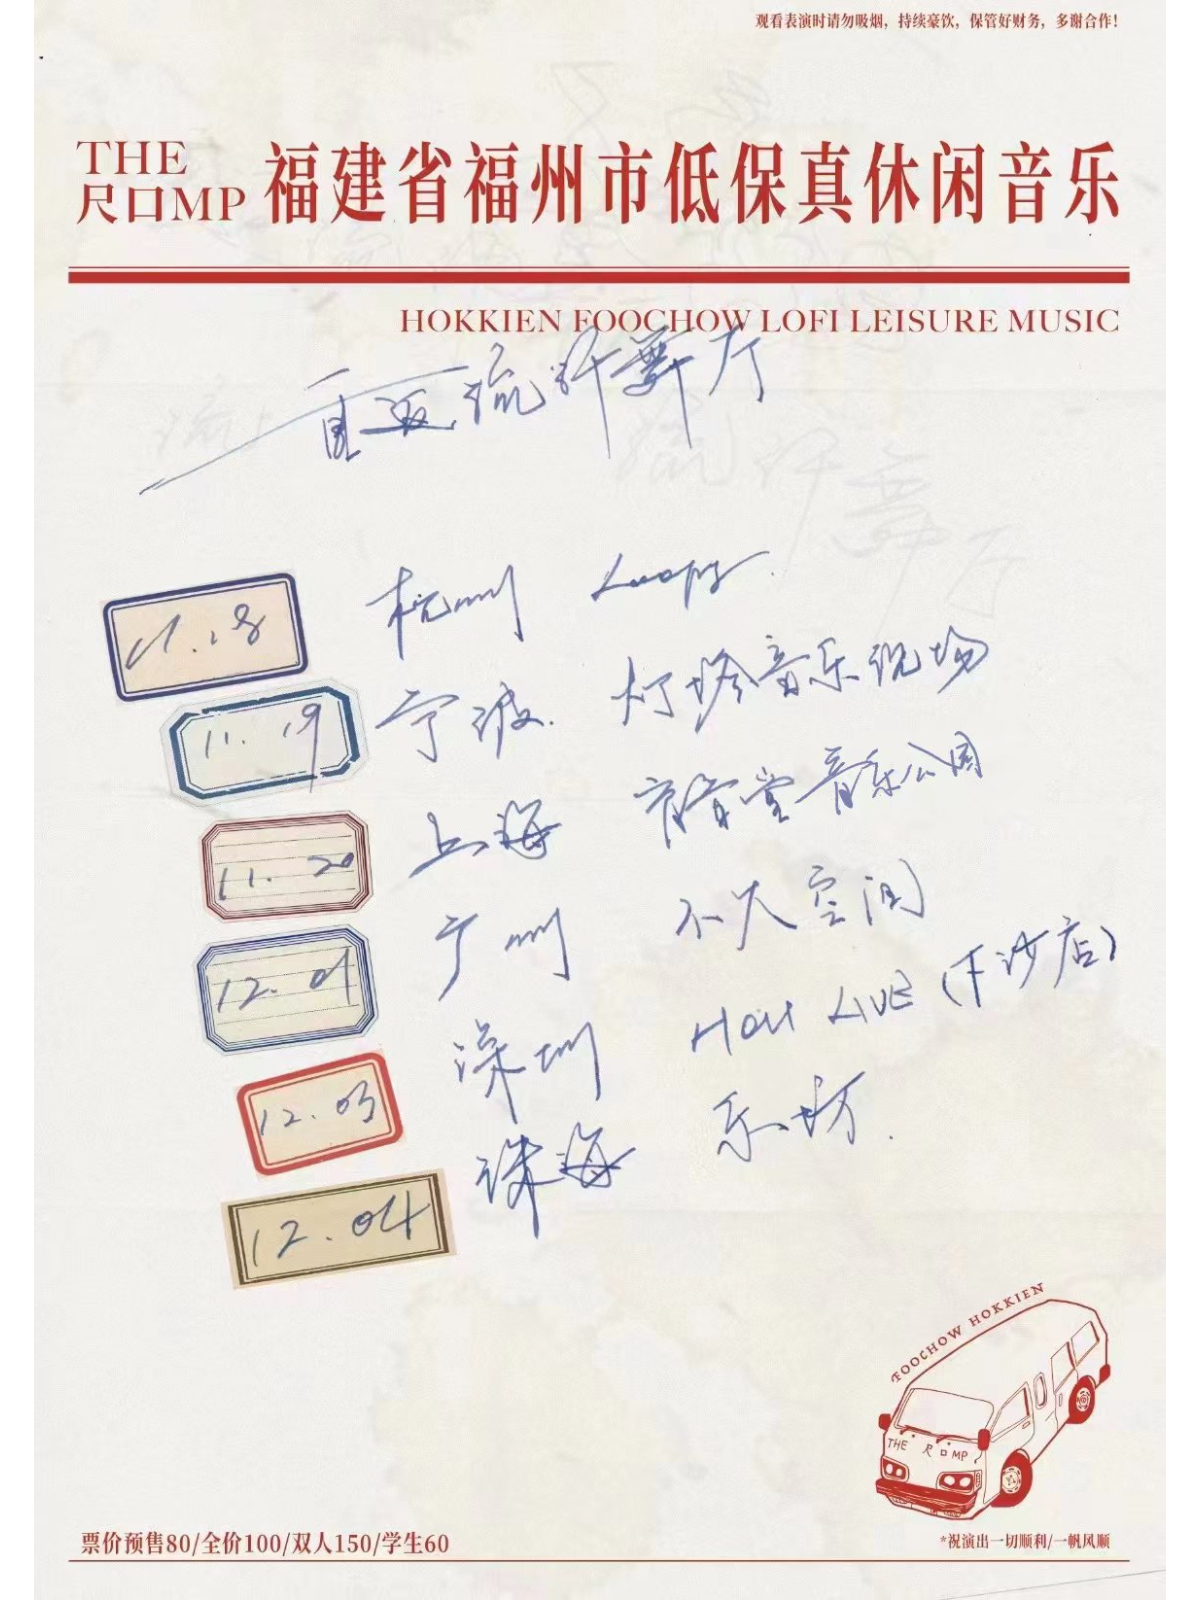 观看表演时请勿吸烟，持续豪饮，保管好财务，多谢合作！
THE
尺口MP
福建省福州市低保真休闲音乐
HOKKIEN FOOCHOW LOFI LEISURE MUSIC
重返流灯舞厅
11.18 杭州 Loopy
11.19 宁波 灯塔音乐现场
11.20 上海 育音堂音乐公园
12.01 广州 不大空间
12.03 深圳 HOU LIVE（下沙店）
12.04 珠海 乐坊
FOOCHOW HOKKIEN
THE 尺口MP
票价预售80/全价100/双人150/学生60
*祝演出一切顺利/一帆风顺